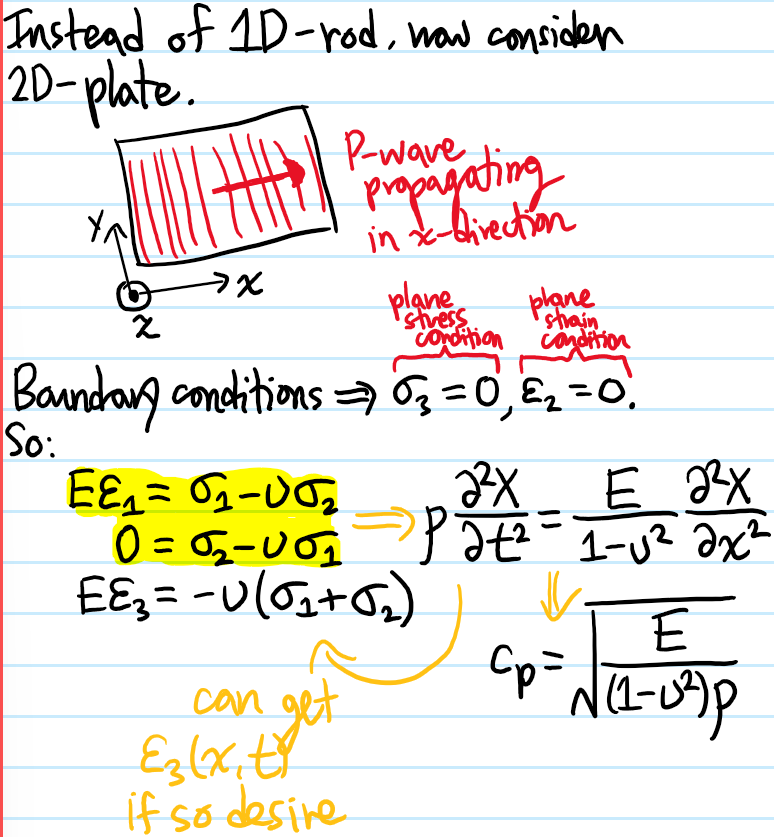 Instead of 1D-rod, now consider
2D-plate.
P-wave
propagating
in x-direction
y
x
z
plane
stress
condition
plane
strain
condition
Boundary conditions ⇒ σ₃ = 0, ε₂ = 0.
So:
Eε₁ = σ₁ - νσ₂
0 = σ₂ - νσ₁
Eε₃ = -ν(σ₁ + σ₂)
⇒ ρ ∂²X/∂t² = E/(1-ν²) ∂²X/∂x²
⇓
c_p = √(E/((1-ν²)ρ))
can get
ε₃(x,t)
if so desire